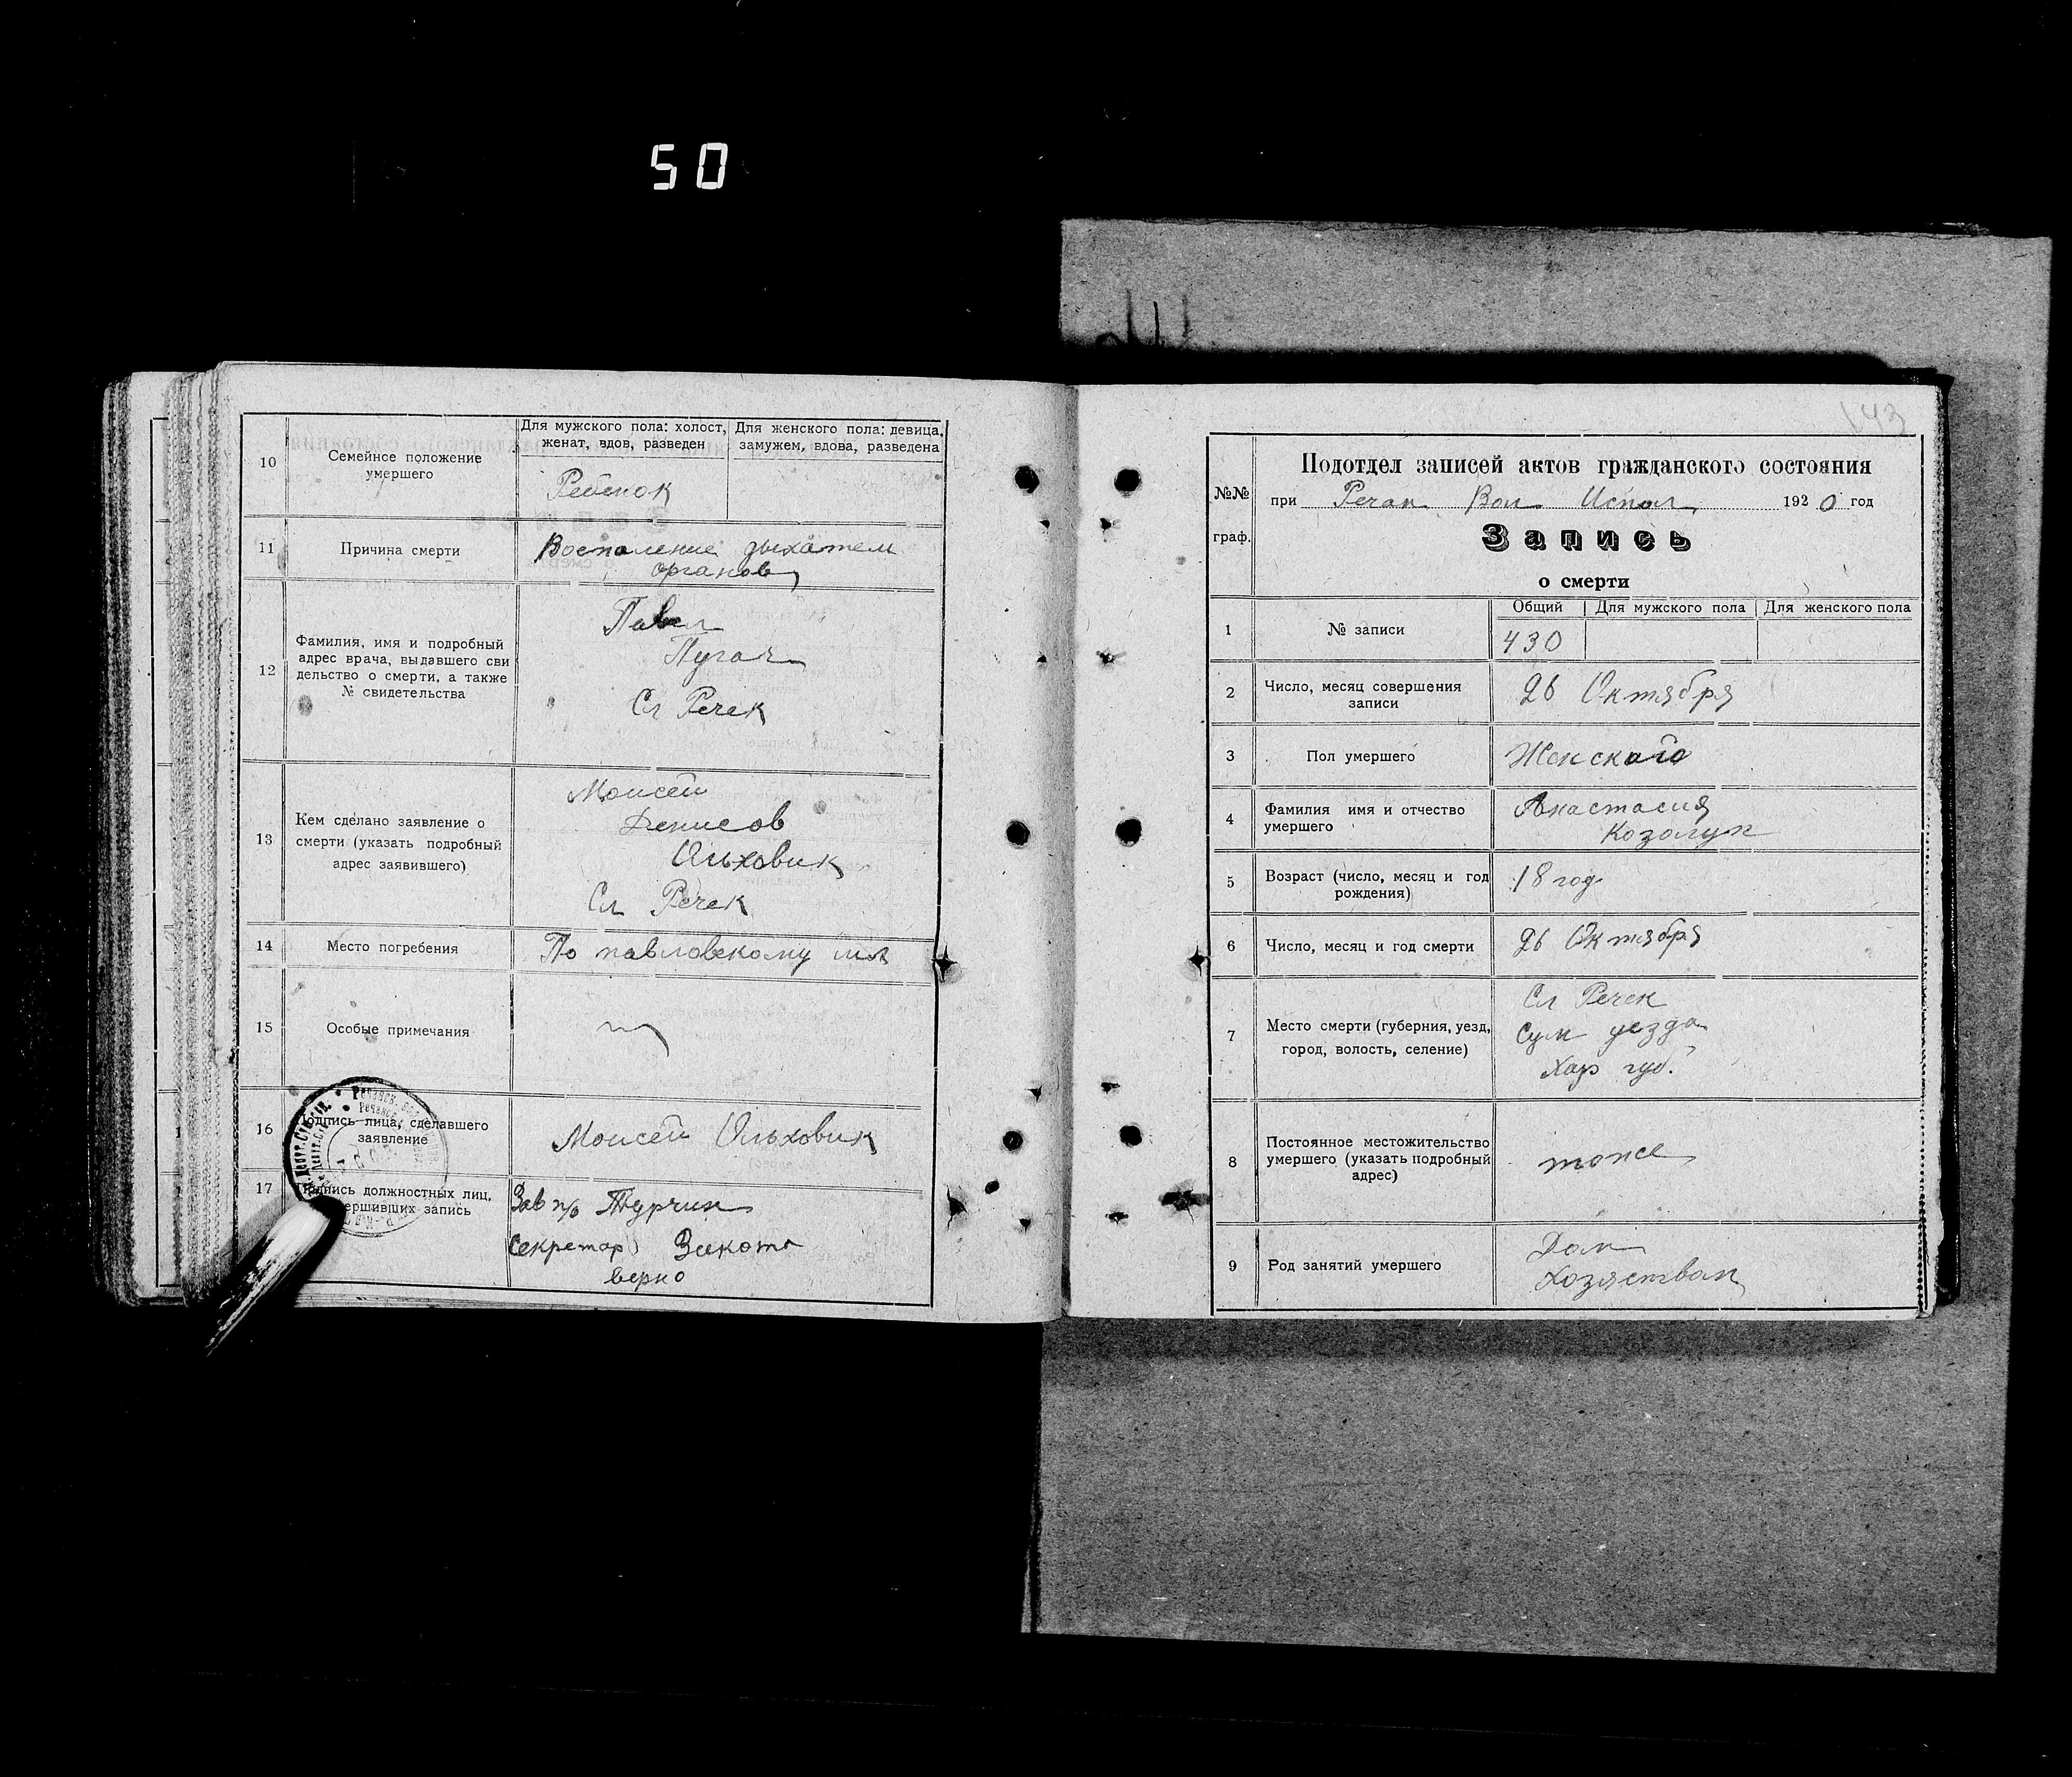 50
10
Семейное положение
умершего
Для мужского пола: холост,
женат, вдов, разведен
Для женского пола: девица,
замужем, вдова, разведена
Ребенок
11
Причина смерти
Воспаление дыхател
органов
12
Фамилия, имя и подробный
адрес врача, выдавшего сви
дельство о смерти, а также
№ свидетельства
Павел
Пугач
Сл Речек
13
Кем сделано заявление о
смерти (указать подробный
адрес заявившего)
Моисей
Денисов
Ольховик
Сл Речек
14
Место погребения
По павловскому
15
Особые примечания
16
Подпись лица, сделавшего
заявление
Моисей Ольховик
17
Подпись должностных лиц,
вершивших запись
Зав п/о Турчин
Секретар
верно
143
№№
граф.
Подотдел записей актов гражданского состояния
при Речан Вол Испол 1920 год
Запись
о смерти
1
№ записи
Общий
Для мужского пола
Для женского пола
430
2
Число, месяц совершения
записи
26 Октября
3
Пол умершего
Женского
4
Фамилия имя и отчество
умершего
Анастасия
Козолуп
5
Возраст (число, месяц и год
рождения)
18 год
6
Число, месяц и год смерти
26 Октября
7
Место смерти (губерния, уезд,
город, волость, селение)
Сл Речек
Сум уезда
Хар губ.
8
Постоянное местожительство
умершего (указать подробный
адрес)
тоже
9
Род занятий умершего
Дом
Хозяйствам